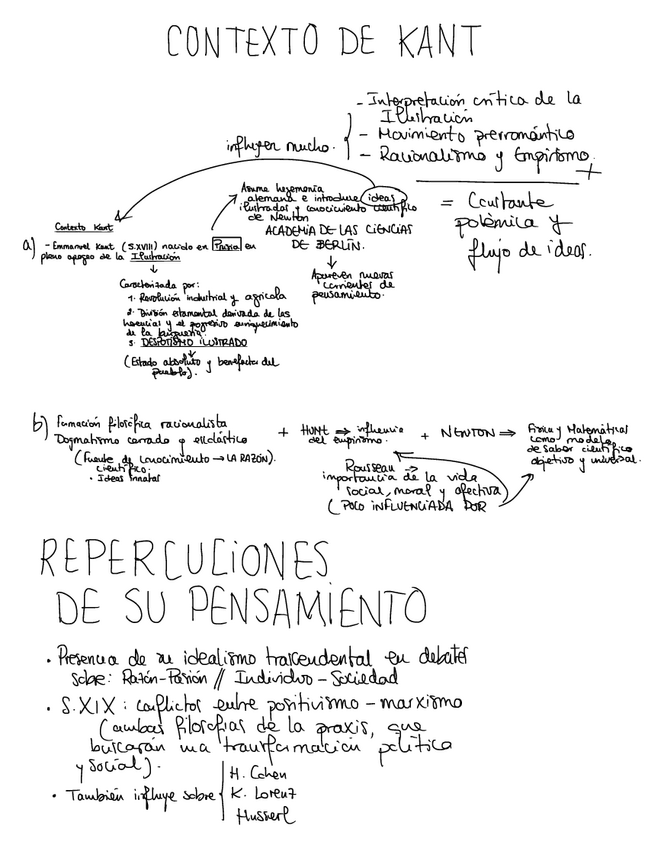 CONTEXTO DE KANT
- Interpretación crítica de la
Ilustración
- Movimiento prerromántico
- Racionalismo y Empirismo.
influyen mucho.
+
= Constante
polémica y
flujo de ideas.
Asume hegemonía
alemana e introduce ideas
ilustradas y conocimiento científico
de Newton
ACADEMIA DE LAS CIENCIAS
DE BERLIN.
↓
Aparecen nuevas
corrientes de
pensamiento.
Contexto Kant
a) - Emmanuel Kant (S.XVIII) nacido en Prusia en
pleno apogeo de la Ilustración
↓
Caracterizada por:
1. Revolución industrial y agrícola
2. División estamental derivada de las
herencias y el progresivo enriquecimiento
de la burguesía.
3. DESPOTISMO ILUSTRADO
↓
(Estado absoluto y benefactor del
pueblo).
b) Formación filosófica racionalista
Dogmatismo cerrado y
(Fuente de conocimiento → LA RAZÓN).
científico.
• Ideas Innatas
+ HUME ⇒ influencia
del empirismo.
+ NEWTON ⇒ Física y Matemáticas
como modelo
de saber científico
objetivo y universal.
Rousseau →
importancia de la vida
social, moral y afectiva
( POCO INFLUENCIADA POR
REPERCUCIONES
DE SU PENSAMIENTO
• Presencia de su idealismo trascendental en debates
sobre: Razón-Pasión // Individuo - Sociedad
• S.XIX : conflictos entre positivismo - marxismo
(ambas filosofías de la praxis, que
buscarán una transformación política
y social).
• También influye sobre
H. Cohen
K. Lorenz
Husserl